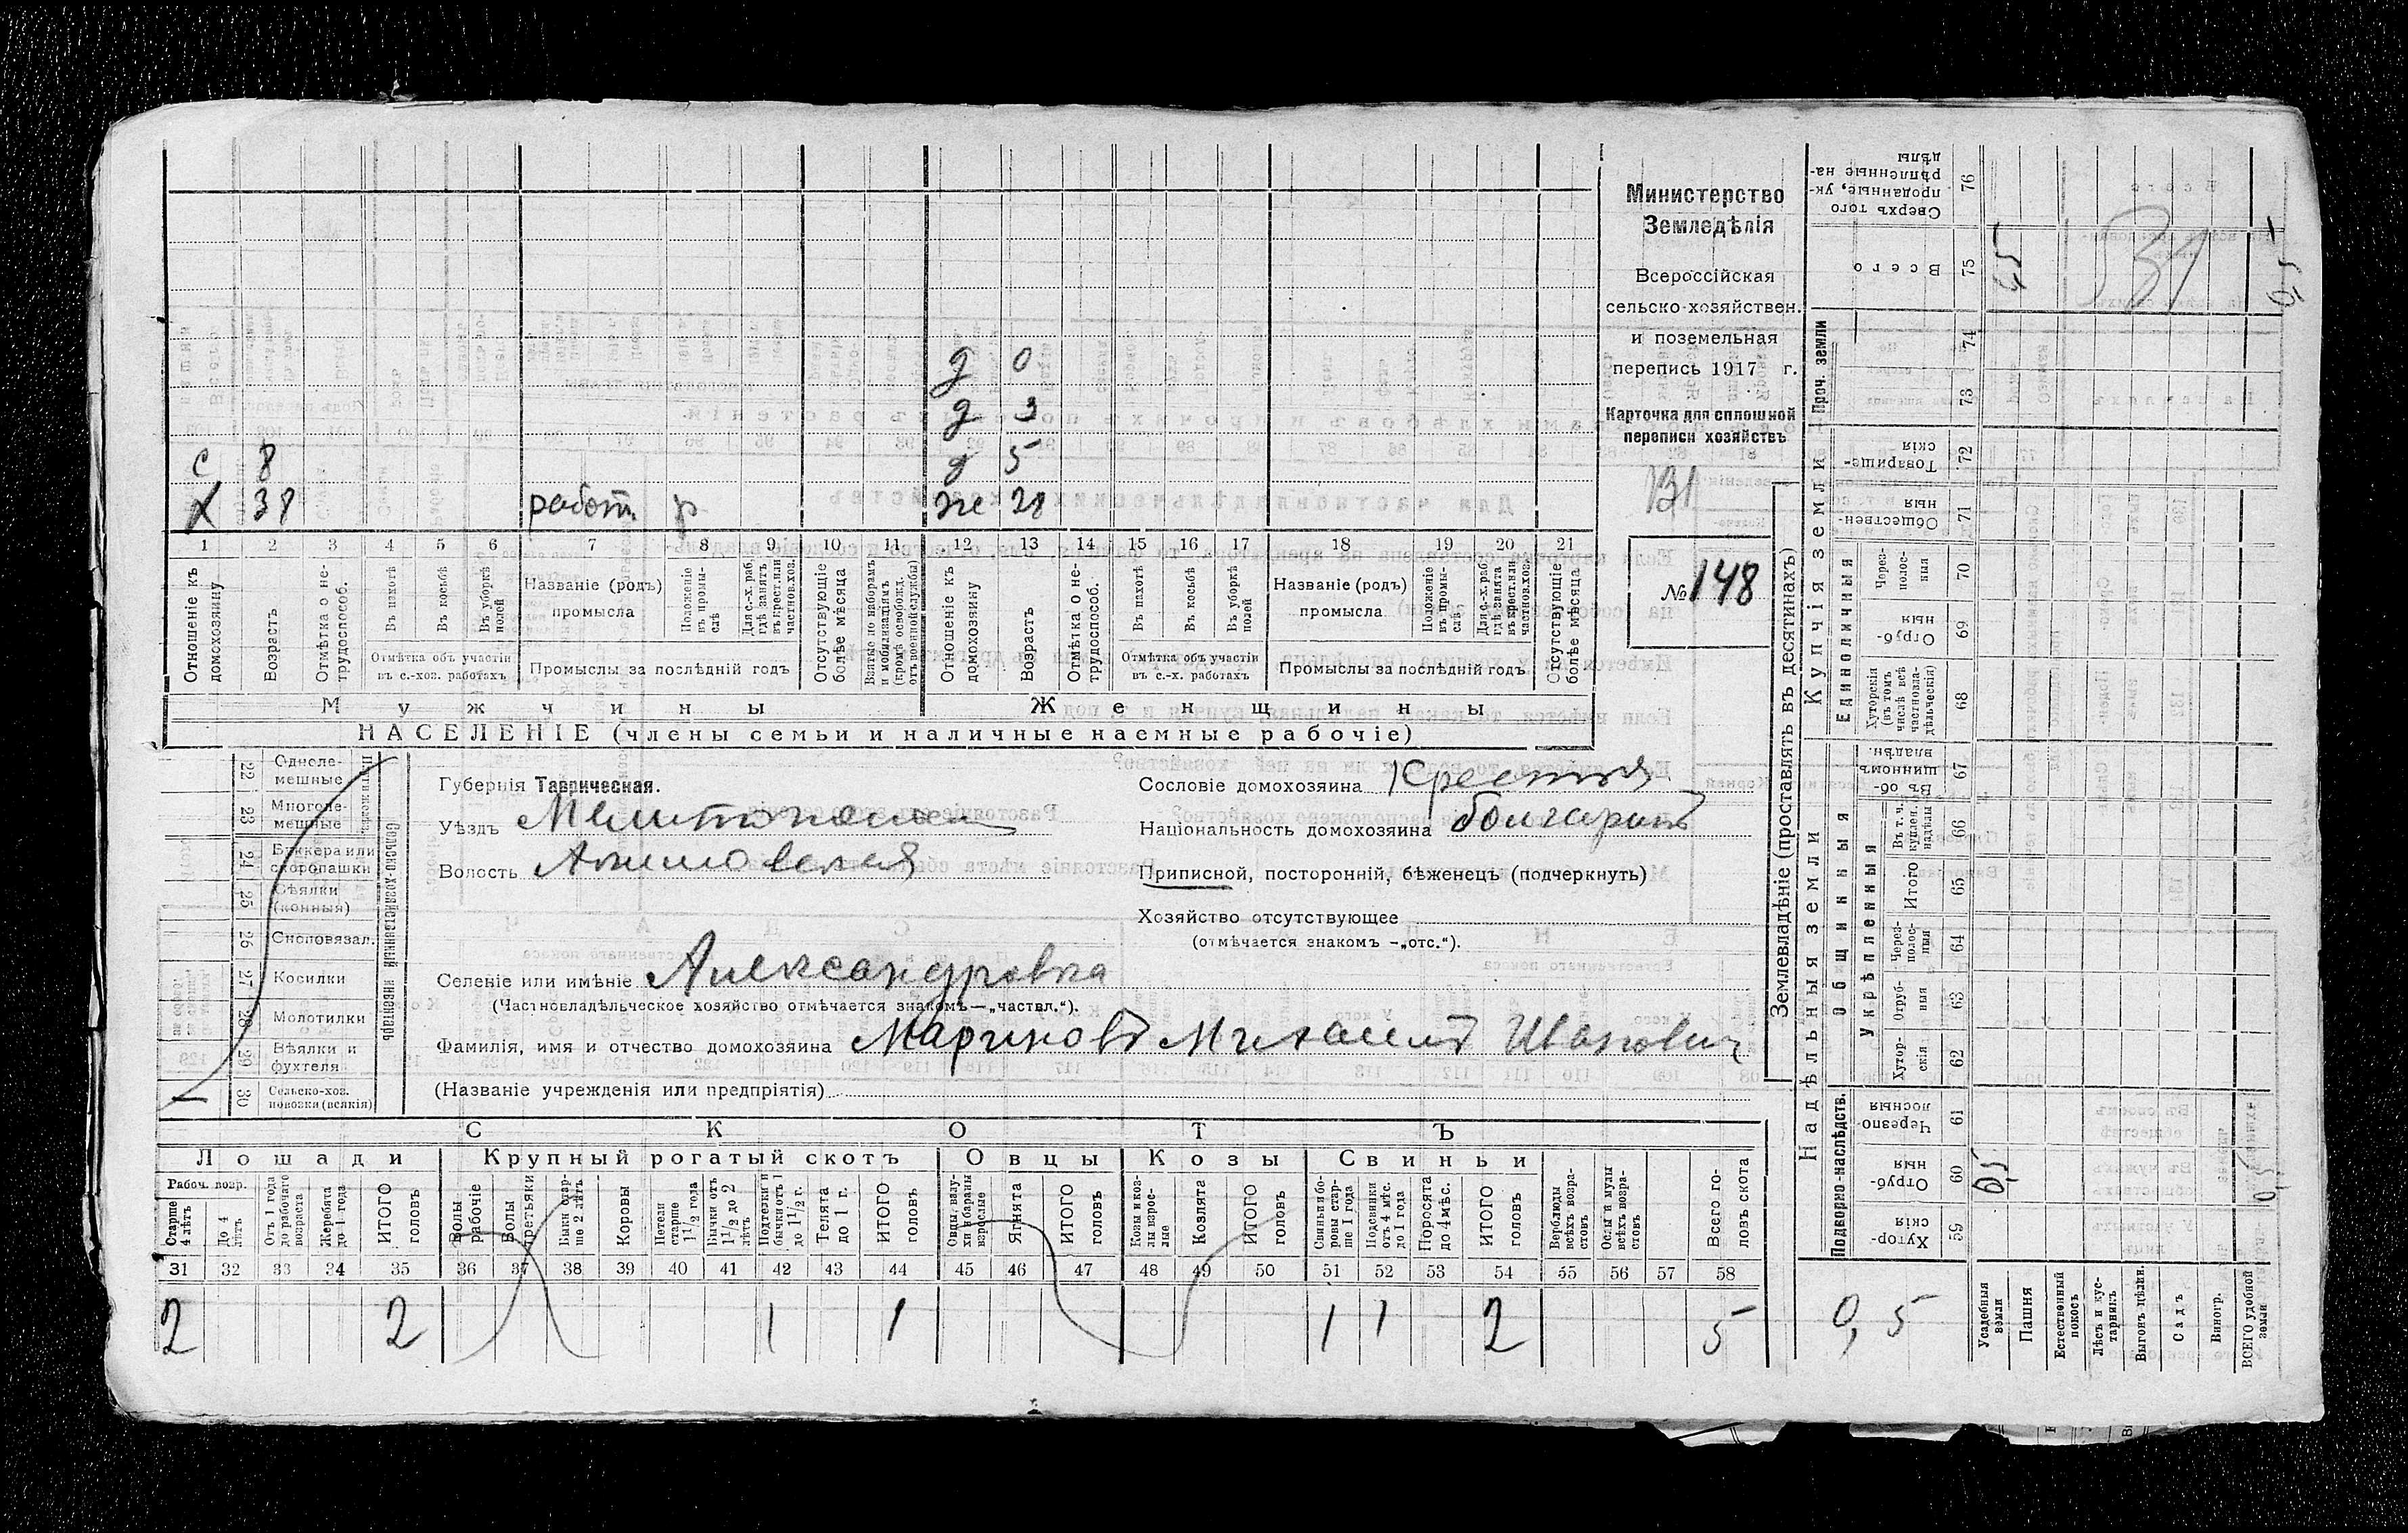 д 0
д 3
с 8 д 5
х 38 работ р же 28
1 2 3 4 5 6 7 8 9 10 11 12 13 14 15 16 17 18 19 20 21
Отношеніе къ домохозяину
Возрастъ
Отмѣтка о не-трудоспособ.
Въ пахотѣ
Въ косьбѣ
Въ уборкѣ полей
Отмѣтка объ участіи въ с.-хоз. работахъ
Названіе (родъ) промысла
Положеніе въ промы-слѣ
Для с.-х. раб. гдѣ занятъ въ крест. или частнов. хоз.
Промыслы за послѣдній годъ
Отсутствующіе болѣе мѣсяца
Взятые по наборамъ и мобилизаціямъ (кромѣ освобожд. отъ военной службы)
Отношеніе къ домохозяину
Возрастъ
Отмѣтка о не-трудоспособ.
Въ пахотѣ
Въ косьбѣ
Въ уборкѣ полей
Отмѣтка объ участіи въ с.-х. работахъ
Названіе (родъ) промысла
Положеніе въ промы-слѣ
Для с.-х. раб. гдѣ занята въ крест. или частнов. хоз.
Промыслы за послѣдній годъ
Отсутствующіе болѣе мѣсяца
Мужчины Женщины
НАСЕЛЕНІЕ (члены семьи и наличные наемные рабочіе)
Министерство
Земледѣлія
Всероссійская
сельско-хозяйствен.
и поземельная
перепись 1917 г.
Карточка для сплошной
переписи хозяйствъ
В1
№ 148
22 Одноле-мешные
23 Многоле-мешные
24 Буккера или скоропашки
25 Сѣялки (конныя)
26 Сноповязал.
27 Косилки
28 Молотилки
29 Вѣялки и фухтеля
30 Сельско-хоз. повозки (всякія)
1
Сельско-хозяйственный инвентарь
Губернія Таврическая.
Уѣздъ Мелитопольск
Волость Акимовская
Сословіе домохозяина Крестья
Національность домохозяина болгаринъ
Приписной, посторонній, бѣженецъ (подчеркнуть)
Хозяйство отсутствующее
(отмѣчается знакомъ -„отс.“).
Селеніе или имѣніе Александровка
(Частновладѣльческое хозяйство отмѣчается знакомъ—„частвл.“).
Фамилія, имя и отчество домохозяина Мариновъ Михаилъ Иванович
(Названіе учрежденія или предпріятія)
СКОТЪ
Лошади Крупный рогатый скотъ Овцы Козы Свиньи
Рабоч. возр.
Старше 4 лѣтъ
До 4 лѣтъ
Отъ 1 года до рабочаго возраста
Жеребята до 1 года
ИТОГО головъ
Волы рабочіе
Волы третьяки
Быки стар-ше 2 лѣтъ
Коровы
Нетели старше 1 1/2 года
Бычки отъ 1 1/2 до 2 лѣтъ
Подтелки и бычки отъ 1 до 1 1/2 г.
Телята до 1 г.
ИТОГО головъ
Овцы, валу-хи и бараны взрослые
Ягнята
ИТОГО головъ
Козы и коз-лы взрос-лые
Козлята
ИТОГО головъ
Свиньи и бо-ровы стар-ше 1 года
Подсвинки отъ 4 мѣс. до 1 года
Поросята до 4 мѣс.
ИТОГО головъ
Верблюды всѣхъ возра-стовъ
Ослы и мулы всѣхъ возра-стовъ
Всего го-ловъ скота
31 32 33 34 35 36 37 38 39 40 41 42 43 44 45 46 47 48 49 50 51 52 53 54 55 56 57 58
2 2 1 1 1 1 2 5
Землевладѣніе (проставлять въ десятинахъ)
Надѣльныя земли
Купчія земли
Проч. земли
Подворно-наслѣдств.
Общинныя
Укрѣпленныя
Единоличныя
Сверхъ того проданные, ук-рѣпленные на-дѣлы 76
Всего 75
74
73
Товарище-скія 72
Обществен-ныя 71
Через-полос-ныя 70
Отруб-ныя 69
Хуторскія (въ томъ числѣ всѣ частновла-дѣльческія) 68
Въ об-щинномъ владѣн. 67
Въ т. ч. куплен. надѣлы 66
Итого 65
Через-полос-ныя 64
Отруб-ныя 63
Хутор-скія 62
Черезпо-лосныя 61
Отруб-ныя 60
Хутор-скія 59
В1
0,5
0,5
Усадебныя земли
Пашня
Естественный покосъ
Лѣсъ и кус-тарникъ
Выгонъ цѣлин.
Садъ
Виногр.
ВСЕГО удобной земли